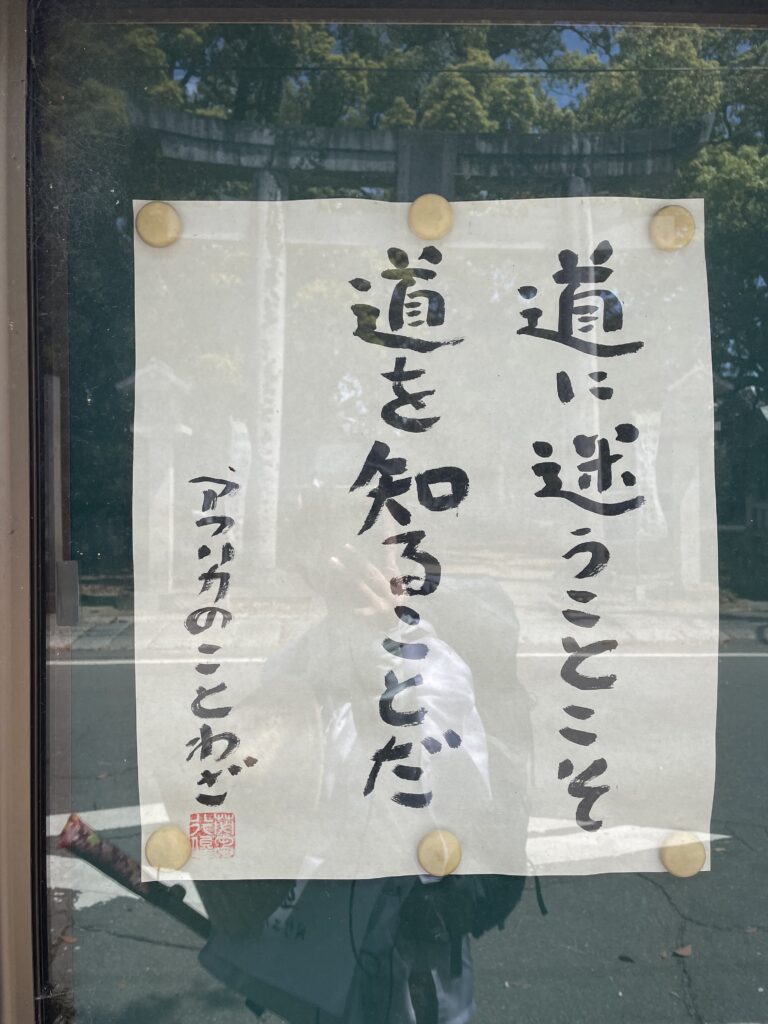 道に迷うことこそ
道を知ることだ
アフリカのことわざ